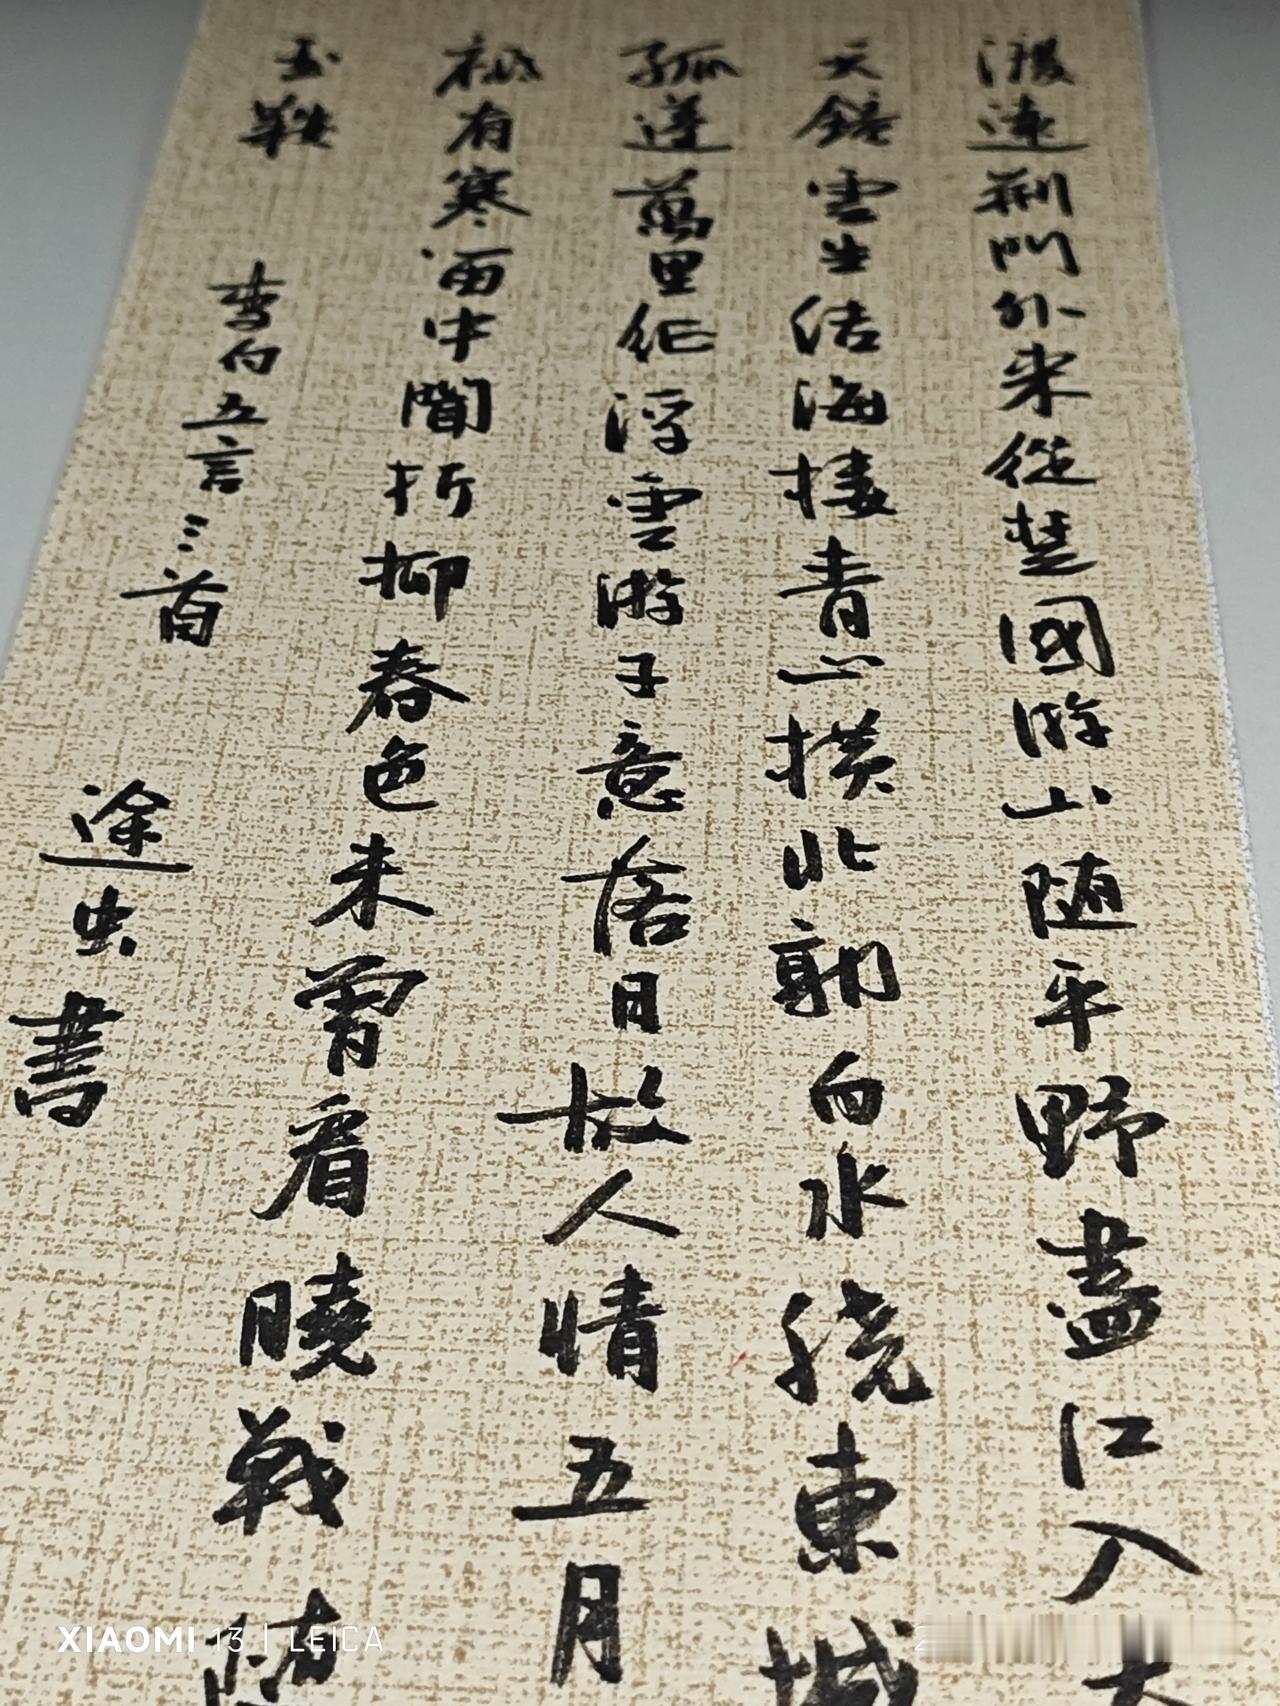 渡遠荆門外来從楚國游山随平野盡江入大
天鏡雲生结海樓青山横北郭白水绕東城
孤蓬萬里征浮雲游子意落日故人情五月
祇有寒雨中聞折柳春色未曾看曉戰随
玉鞍
李白五言三首
途虫書
XIAOMI 13 | LEICA